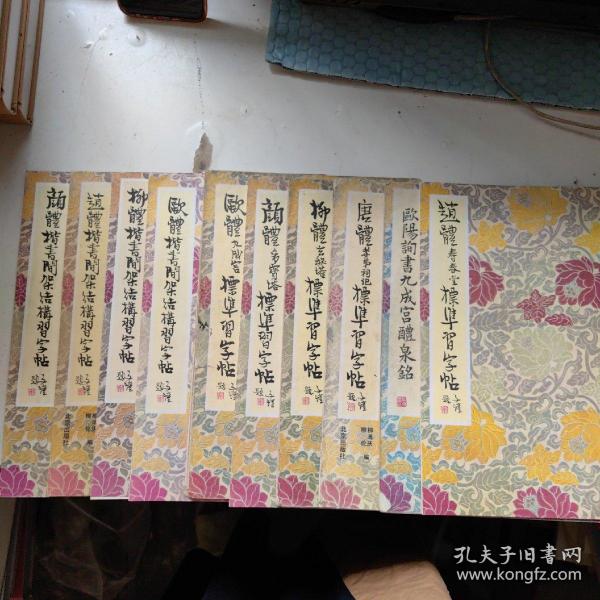 顔體楷書間架结構習字帖
趙體楷書間架结構習字帖
北京出版社
柳體楷書間架结構習字帖
歐體楷書間架结構習字帖
歐體九成宫標準習字帖
顔體多寶塔標準習字帖
柳體玄秘塔標準習字帖
唐體標準習字帖
柳溥庆
柳伦
编
北京出版社
歐陽詢書九成宫醴泉銘
趙體壽春堂標準習字帖
孔夫子旧书网
www.kongfz.com